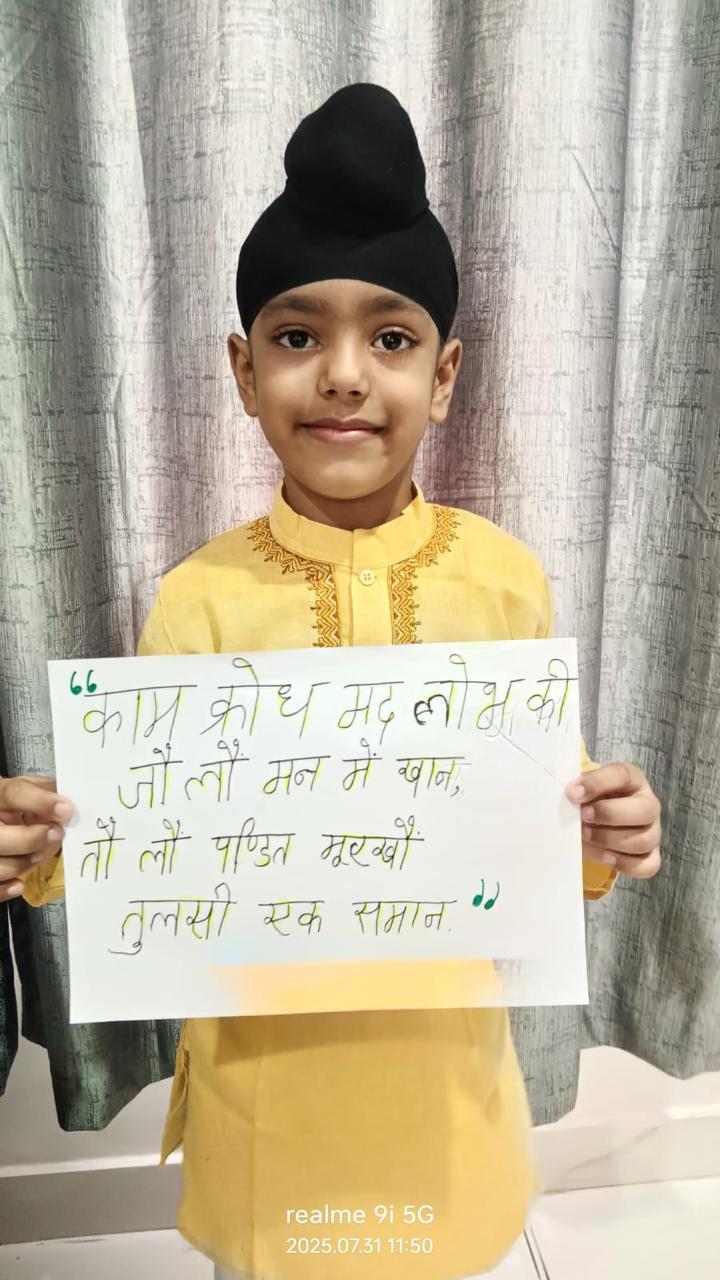 “काम क्रोध मद लोभ की
जौ लौं मन में खान,
तौ लौं पण्डित मूरखौं
तुलसी एक समान.”
realme 9i 5G
2025.07.31 11:50